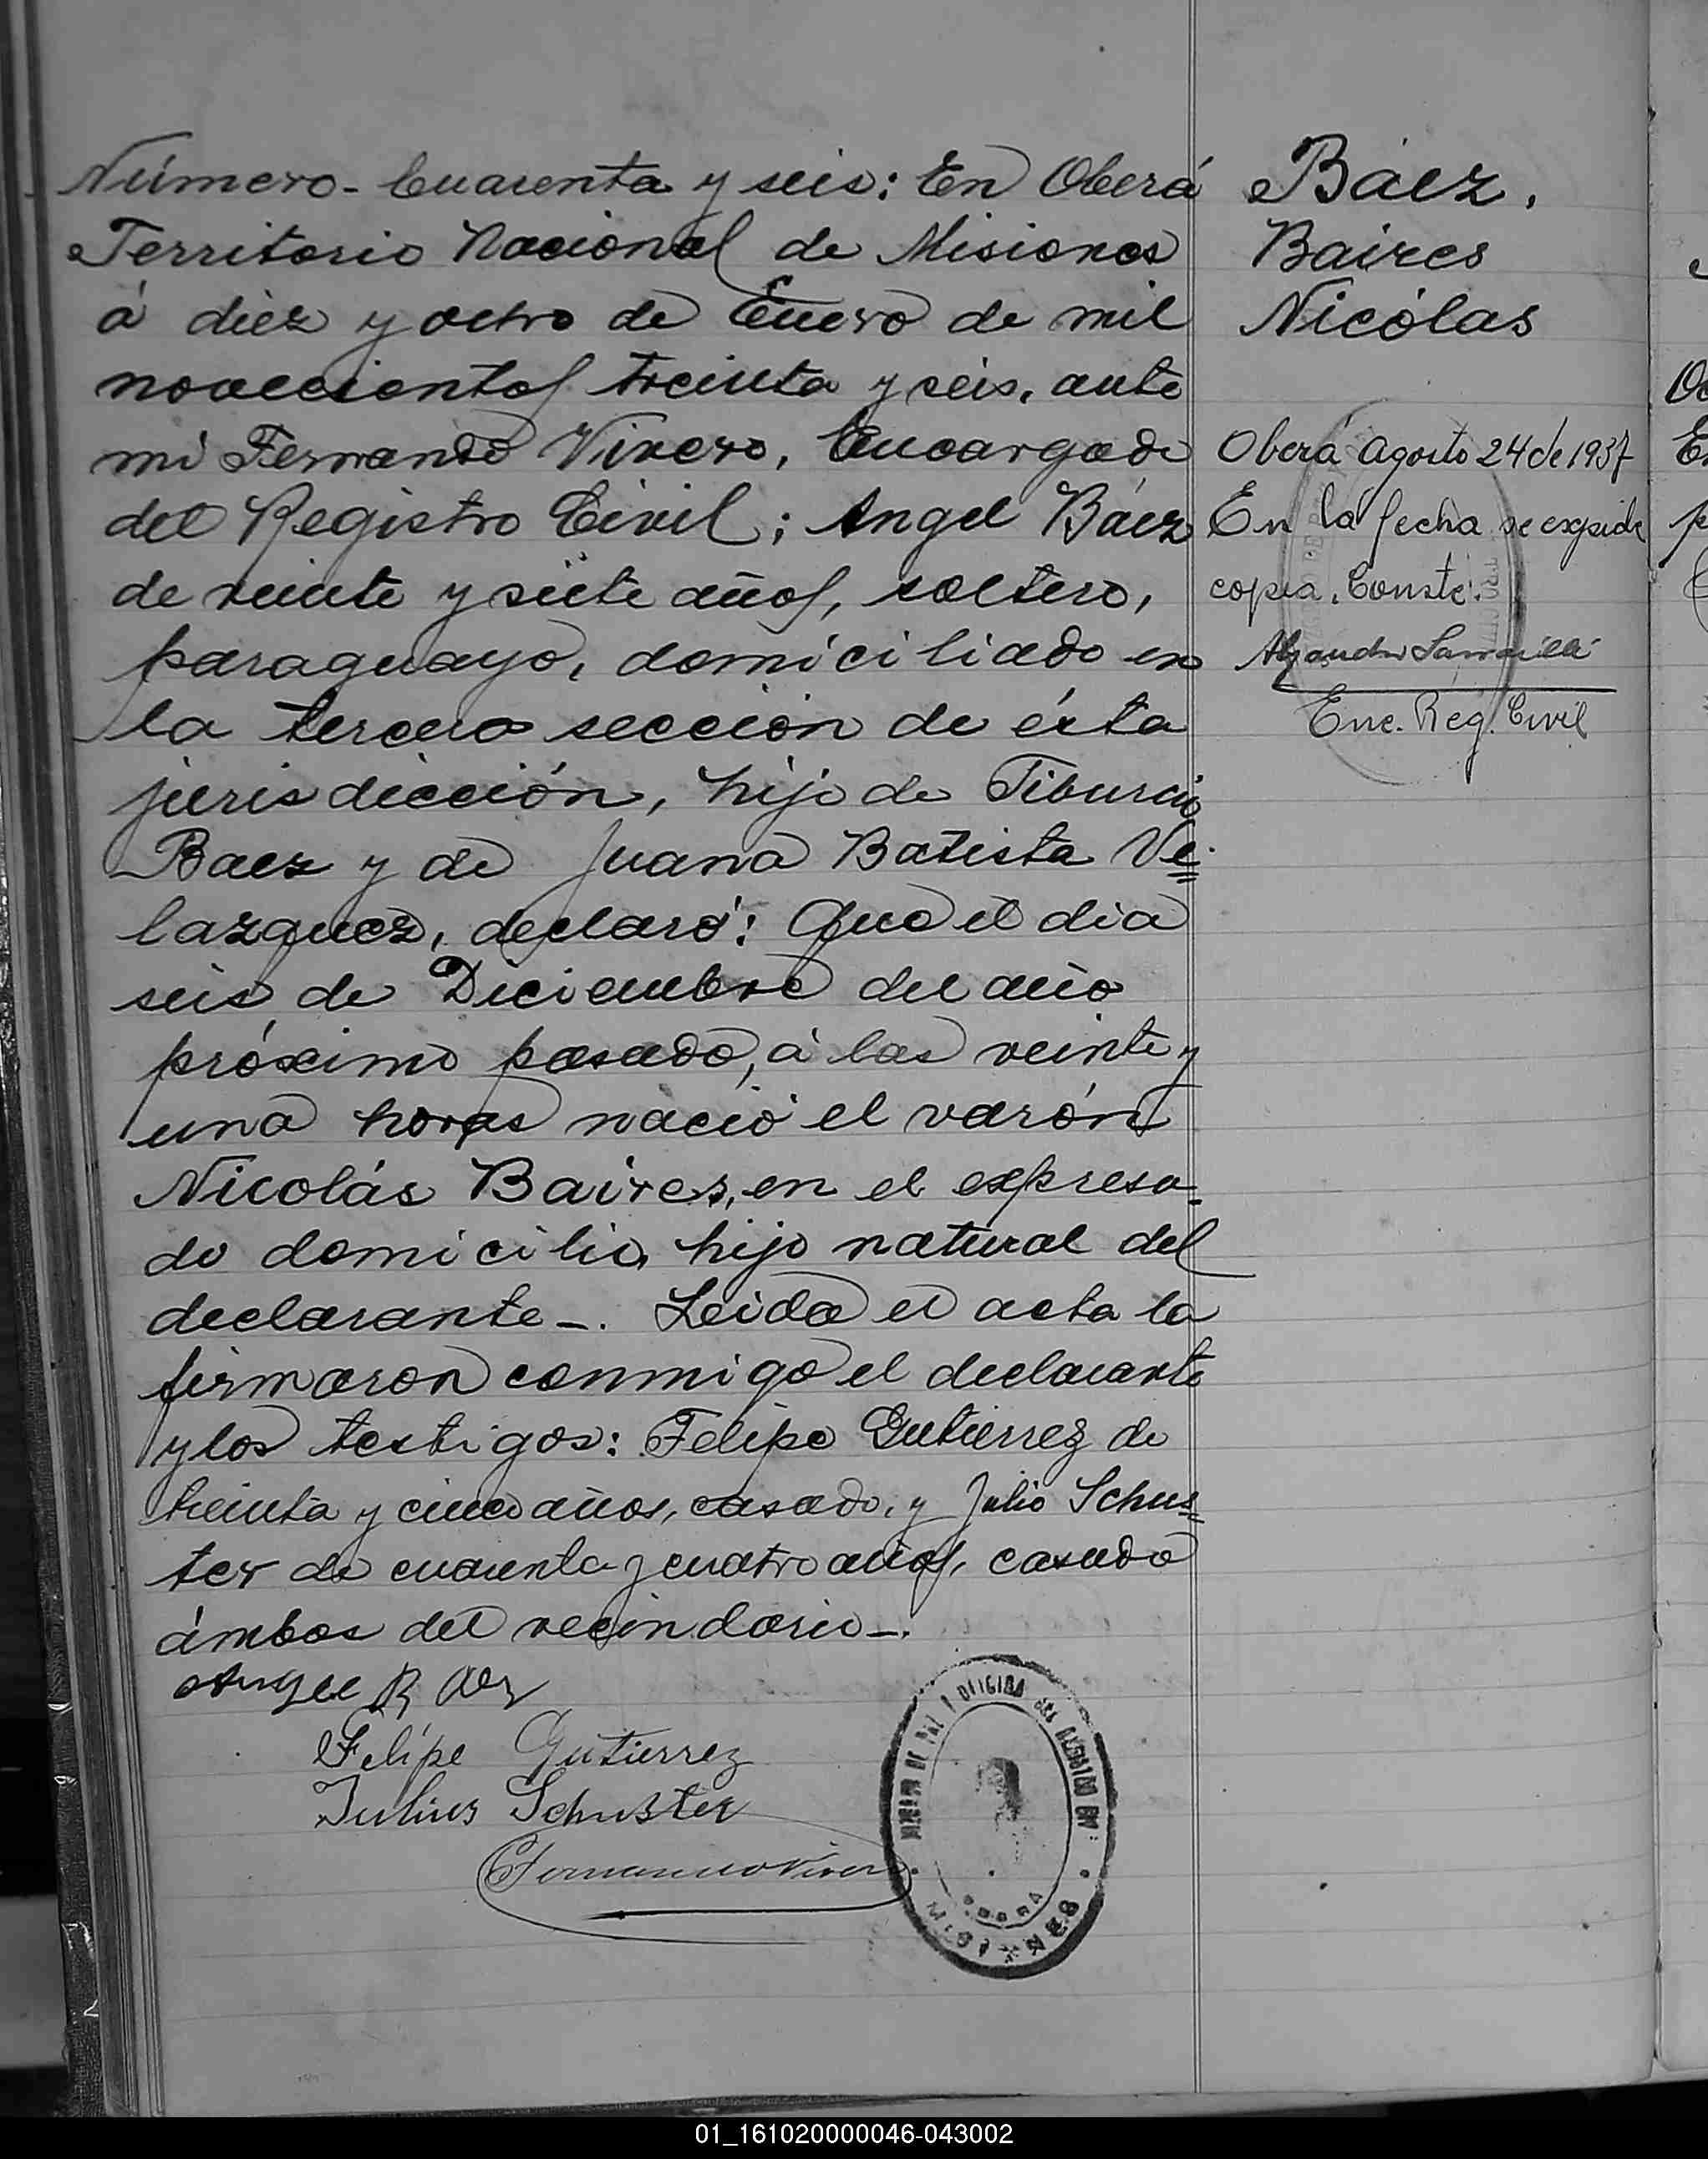 Número- Cuarenta y seis: En Oberá
Territorio Nacional de Misiones
á diez y ocho de Enero de mil
novecientos treinta y seis, ante
mi Fernando Vivero, Encargado
del Registro Civil; Angel Báez
de veinte y siete años, soltero,
paraguayo, domiciliado en
la tercera sección de ésta
jurisdicción, hijo de Tiburcio
Baez y de Juana Batista Ve=
lazquez, declaró: Que el dia
seis de Diciembre del año
próximo pasado, á las veinte y
una horas nació el varón
Nicolás Baires, en el expresa-
do domicilio, hijo natural del
declarante-. Leida el acta la
firmaron conmigo el declarante
y los testigos: Felipe Gutierrez de
treinta y cinco años, casado, y Julio Schus=
ter de cuarenta y cuatro años, casado
ámbos del vecindario-.
Angel Baez
Felipe Gutierrez
Julius Schuster
Fernando Vivero
JUZGADO DE PAZ Y OFICINA DEL REGISTRO CIVIL
OBERA
MISIONES
Báez,
Baires
Nicólas
Oberá Agosto 24 de 1937
En la fecha se expide
copia. Conste.
Enc. Reg. Civil
01_161020000046-043002